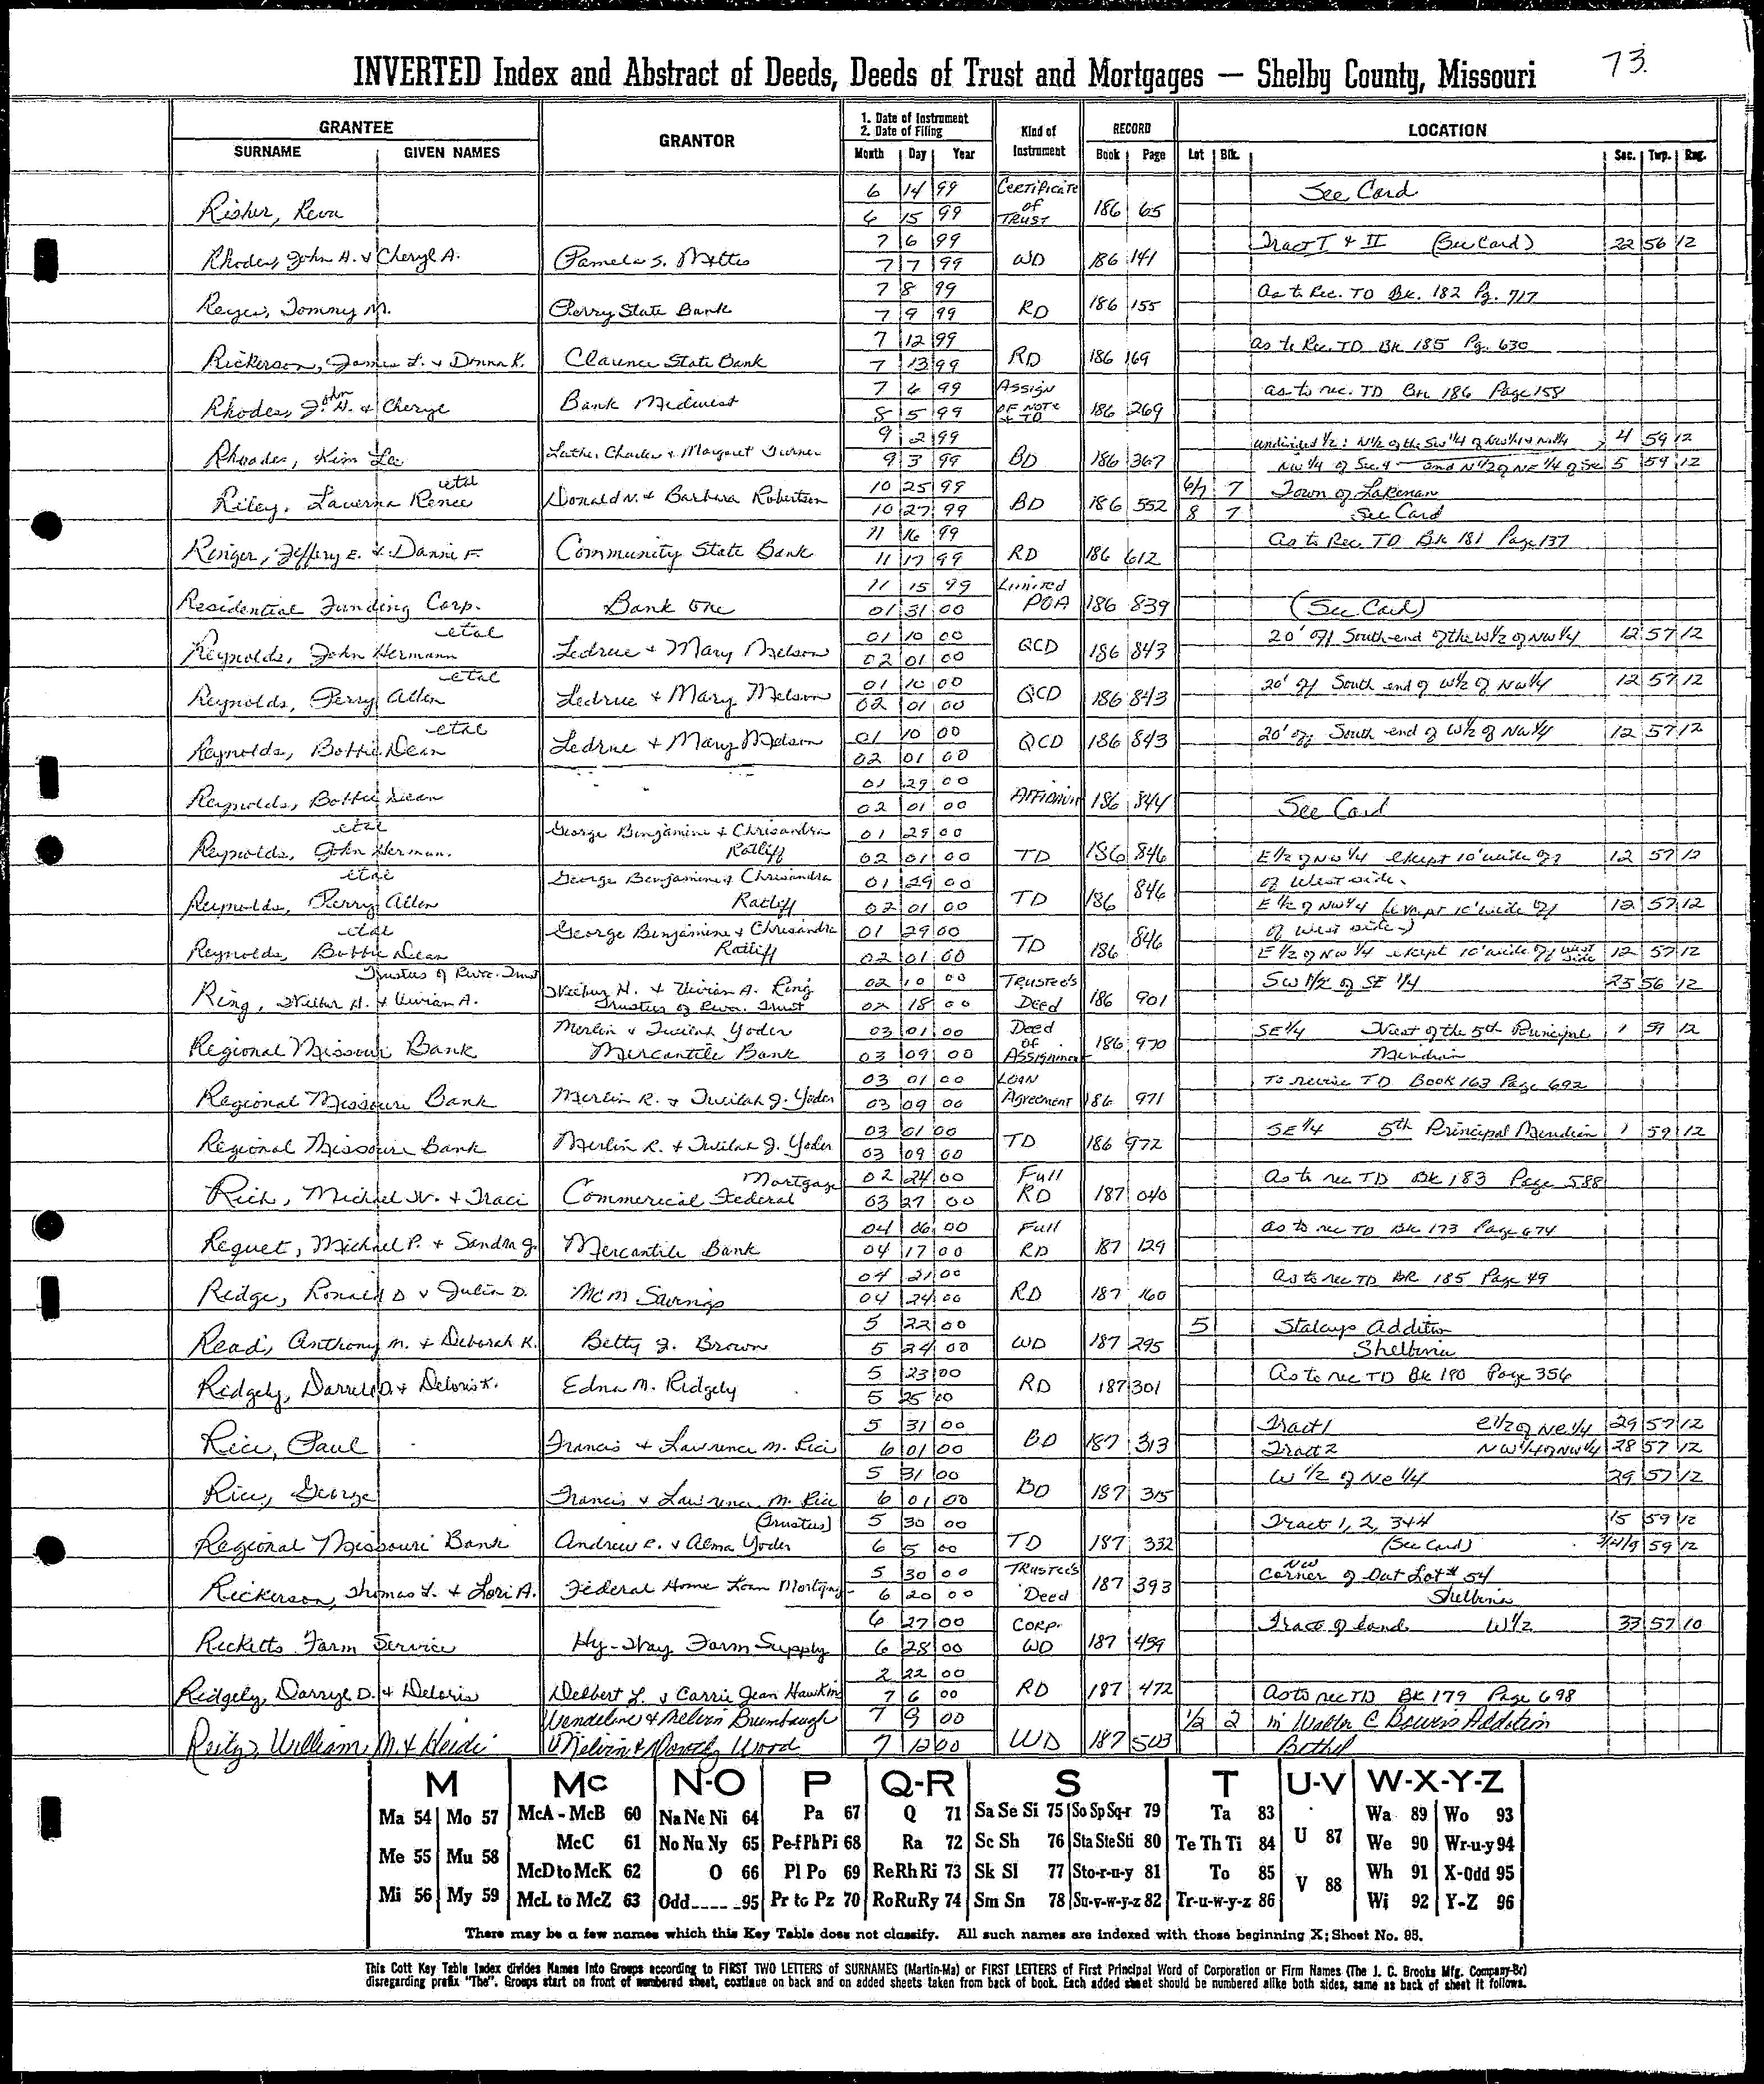 73.
INVERTED Index and Abstract of Deeds, Deeds of Trust and Mortgages — Shelby County, Missouri
GRANTEE GRANTOR 1. Date of Instrument 2. Date of Filing Kind of Instrument RECORD LOCATION
SURNAME GIVEN NAMES Month Day Year Book Page Lot Blk. Sec. Twp. Rng.
6 14 99 Certificate See Card
Risher, Reva 6 15 99 of Trust 186 65
7 6 99 Tract I & II (See Card) 22 56 12
Rhodes, John H. & Cheryl A. Pamela S. 7 7 99 WD 186 141
7 8 99 As to Rec. TD Bk. 182 Pg. 717
Reyes, Tommy M. Perry State Bank 7 9 99 RD 186 155
7 12 99 as to Rec. TD Bk 185 Pg. 630
Rickerson, James L. & Donna K. Clarence State Bank 7 13 99 RD 186 169
7 6 99 Assign as to rec. TD Bk 186 Page 158
Rhodes, John H. & Cheryl Bank Midwest 8 5 99 of Note & TD 186 269
9 2 99 undivided 1/2: N1/2 of the SW 1/4 of 4 59 12
Rhoades, Kim Le Luther Charles & Margaret Turner 9 3 99 BD 186 367 NW 1/4 of Sec 4 and N 1/2 of NE 1/4 of Sec 5 59 12
etal 10 25 99 6/7 7 Town of Lakenan
Riley, Laverna Renee Donald N. & Barbara Robertson 10 27 99 BD 186 552 8 7 See Card
11 16 99 As to Rec TD Bk 181 Page 137
Ringer, Jeffery E. & Dannie F. Community State Bank 11 17 99 RD 186 612
11 15 99 Limited
Residential Funding Corp. Bank One 01 31 00 POA 186 839 (See Card)
etal 01 10 00 20' off South end of the W1/2 of NW 1/4 12 57 12
Reynolds, John Hermann Ledrue & Mary Melson 02 01 00 QCD 186 843
etal 01 10 00 20' off South end of W1/2 of NW 1/4 12 57 12
Reynolds, Perry Allen Ledrue & Mary Melson 02 01 00 QCD 186 843
etal 01 10 00 20' off South end of W1/2 of NW 1/4 12 57 12
Reynolds, Bobbie Dean Ledrue & Mary Melson 02 01 00 QCD 186 843
01 29 00
Reynolds, Bobbie Dean 02 01 00 Affidavit 186 844 See Card
etal George Benjamine & Chrisandra 01 29 00
Reynolds, John Herman. Ratliff 02 01 00 TD 186 846 E 1/2 of NW 1/4 except 10' wide off 12 57 12
etal George Benjamine & Chrisandra 01 29 00 of West side.
Reynolds, Perry Allen Ratliff 02 01 00 TD 186 846 E 1/2 of NW 1/4 (except 10' wide off 12 57 12
etal George Benjamine & Chrisandra 01 29 00 of west side)
Reynolds, Bobbie Dean Ratliff 02 01 00 TD 186 846 E 1/2 of NW 1/4 except 10' wide off west side 12 57 12
Trustees of Revc. Trust 02 10 00 Trustee's SW 1/2 of SE 1/4 25 56 12
Ring, Wilbur H. & Vivian A. Wilbur H. & Vivian A. Ring Trustees of Revo. Trust 02 18 00 Deed 186 901
Merlin & Twilah Yoder 03 01 00 Deed SE 1/4 West of the 5th Principal 1 59 12
Regional Missouri Bank Mercantile Bank 03 09 00 of Assignment 186 970 Meridian
03 01 00 Loan To revise TD Book 163 Page 692
Regional Missouri Bank Merlin R. & Twilah J. Yoder 03 09 00 Agreement 186 971
03 01 00 SE 1/4 5th Principal Meridian 1 59 12
Regional Missouri Bank Merlin R. & Twilah J. Yoder 03 09 00 TD 186 972
Mortgage 02 24 00 Full As to rec TD Bk 183 Page 588
Rich, Michael W. & Traci Commerical Federal 03 27 00 RD 187 040
04 06 00 Full as to rec TD Bk 173 Page 674
Requet, Michael P. & Sandra J. Mercantile Bank 04 17 00 RD 187 129
04 21 00 As to rec TD BK 185 Page 49
Ridge, Ronald D & Julia D. MCM Savings 04 24 00 RD 187 160
5 22 00 5 Stalcups Addition
Read, Anthony M. & Deborah K. Betty J. Brown 5 24 00 WD 187 295 Shelbina
5 23 00 As to rec TD Bk 180 Page 356
Ridgely, Darrell D. & Deloris K. Edna M. Ridgely 5 25 00 RD 187 301
5 31 00 Tract 1 E1/2 of NE 1/4 29 57 12
Rice, Paul Francis & Lawrence M. Rice 6 01 00 BD 187 313 Tract 2 NW1/4 of NW1/4 28 57 12
5 31 00 W 1/2 of NE 1/4 29 57 12
Rice, George Francis & Lawrence M. Rice 6 01 00 BD 187 315
(Trustees) 5 30 00 Tract 1, 2, 3 & 4 15 59 12
Regional Missouri Bank Andrew E. & Alma Yoder 6 5 00 TD 187 332 (See Card) 59 12
5 30 00 Trustee's NW Corner of Out Lot # 54
Rickerson, Thomas L. & Lori A. Federal Home Loan Mortgage 6 20 00 Deed 187 393 Shelbina
6 27 00 Corp. Tract of land W1/2 33 57 10
Ricketts Farm Service Hy-Way Farm Supply 6 28 00 WD 187 459
2 22 00
Ridgely, Darryl D. & Deloris Delbert L. & Carrie Jean Hawkins 7 6 00 RD 187 472 As to rec TD BK 179 Page 698
Wendeline & Melvin Brumbaugh 7 9 00 1/2 2 in Walter C Bowers Addition
Reitz, William M. & Heidi Melvin & Dorothy Wood 7 12 00 WD 187 503 Bethel
M Mc N-O P Q-R S T U-V W-X-Y-Z
Ma 54 Mo 57 McA - McB 60 Na Ne Ni 64 Pa 67 Q 71 Sa Se Si 75 So Sp Sq-r 79 Ta 83 Wa 89 Wo 93
Me 55 Mu 58 McC 61 No Nu Ny 65 Pe-f Ph Pi 68 Ra 72 Sc Sh 76 Sta Ste Sti 80 Te Th Ti 84 U 87 We 90 Wr-u-y 94
McD to McK 62 O 66 Pl Po 69 Re Rh Ri 73 Sk Sl 77 Sto-r-u-y 81 To 85 V 88 Wh 91 X-Odd 95
Mi 56 My 59 McL to McZ 63 Odd 95 Pr to Pz 70 Ro Ru Ry 74 Sm Sn 78 Su-v-w-y-z 82 Tr-u-w-y-z 86 Wi 92 Y-Z 96
There may be a few names which this Key Table does not classify. All such names are indexed with those beginning X; Sheet No. 95.
This Cott Key Table Index divides Names Into Groups according to FIRST TWO LETTERS of SURNAMES (Martin-Ma) or FIRST LETTERS of First Principal Word of Corporation or Firm Names (The J. C. Brooks Mfg. Company-Br)
disregarding prefix "The". Groups start on front of numbered sheet, continue on back and on added sheets taken from back of book. Each added sheet should be numbered alike both sides, same as back of sheet it follows.